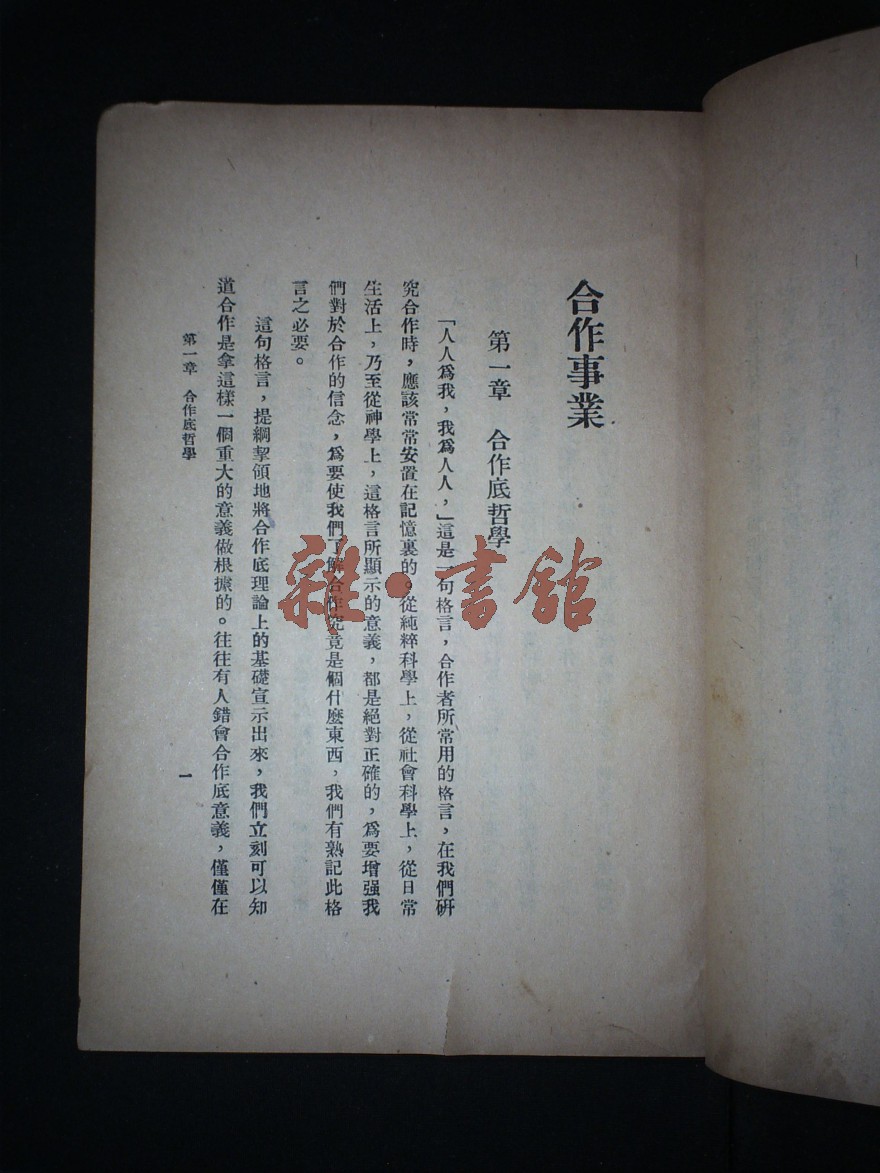 合作事業
第一章　合作底哲學
「人人爲我，我爲人人，」這是一句格言，合作者所常用的格言，在我們研
究合作時，應該常常安置在記憶裏的。從純粹科學上，從社會科學上，從日常
生活上，乃至從神學上，這格言所顯示的意義，都是絕對正確的，爲要增强我
們對於合作的信念，爲要使我們了解合作究竟是個什麼東西，我們有熟記此格
言之必要。
這句格言，提綱挈領地將合作底理論上的基礎宣示出來，我們立刻可以知
道合作是拿這樣一個重大的意義做根據的。往往有人錯會合作底意義，僅僅在
第一章　合作底哲學
一
雜·書館